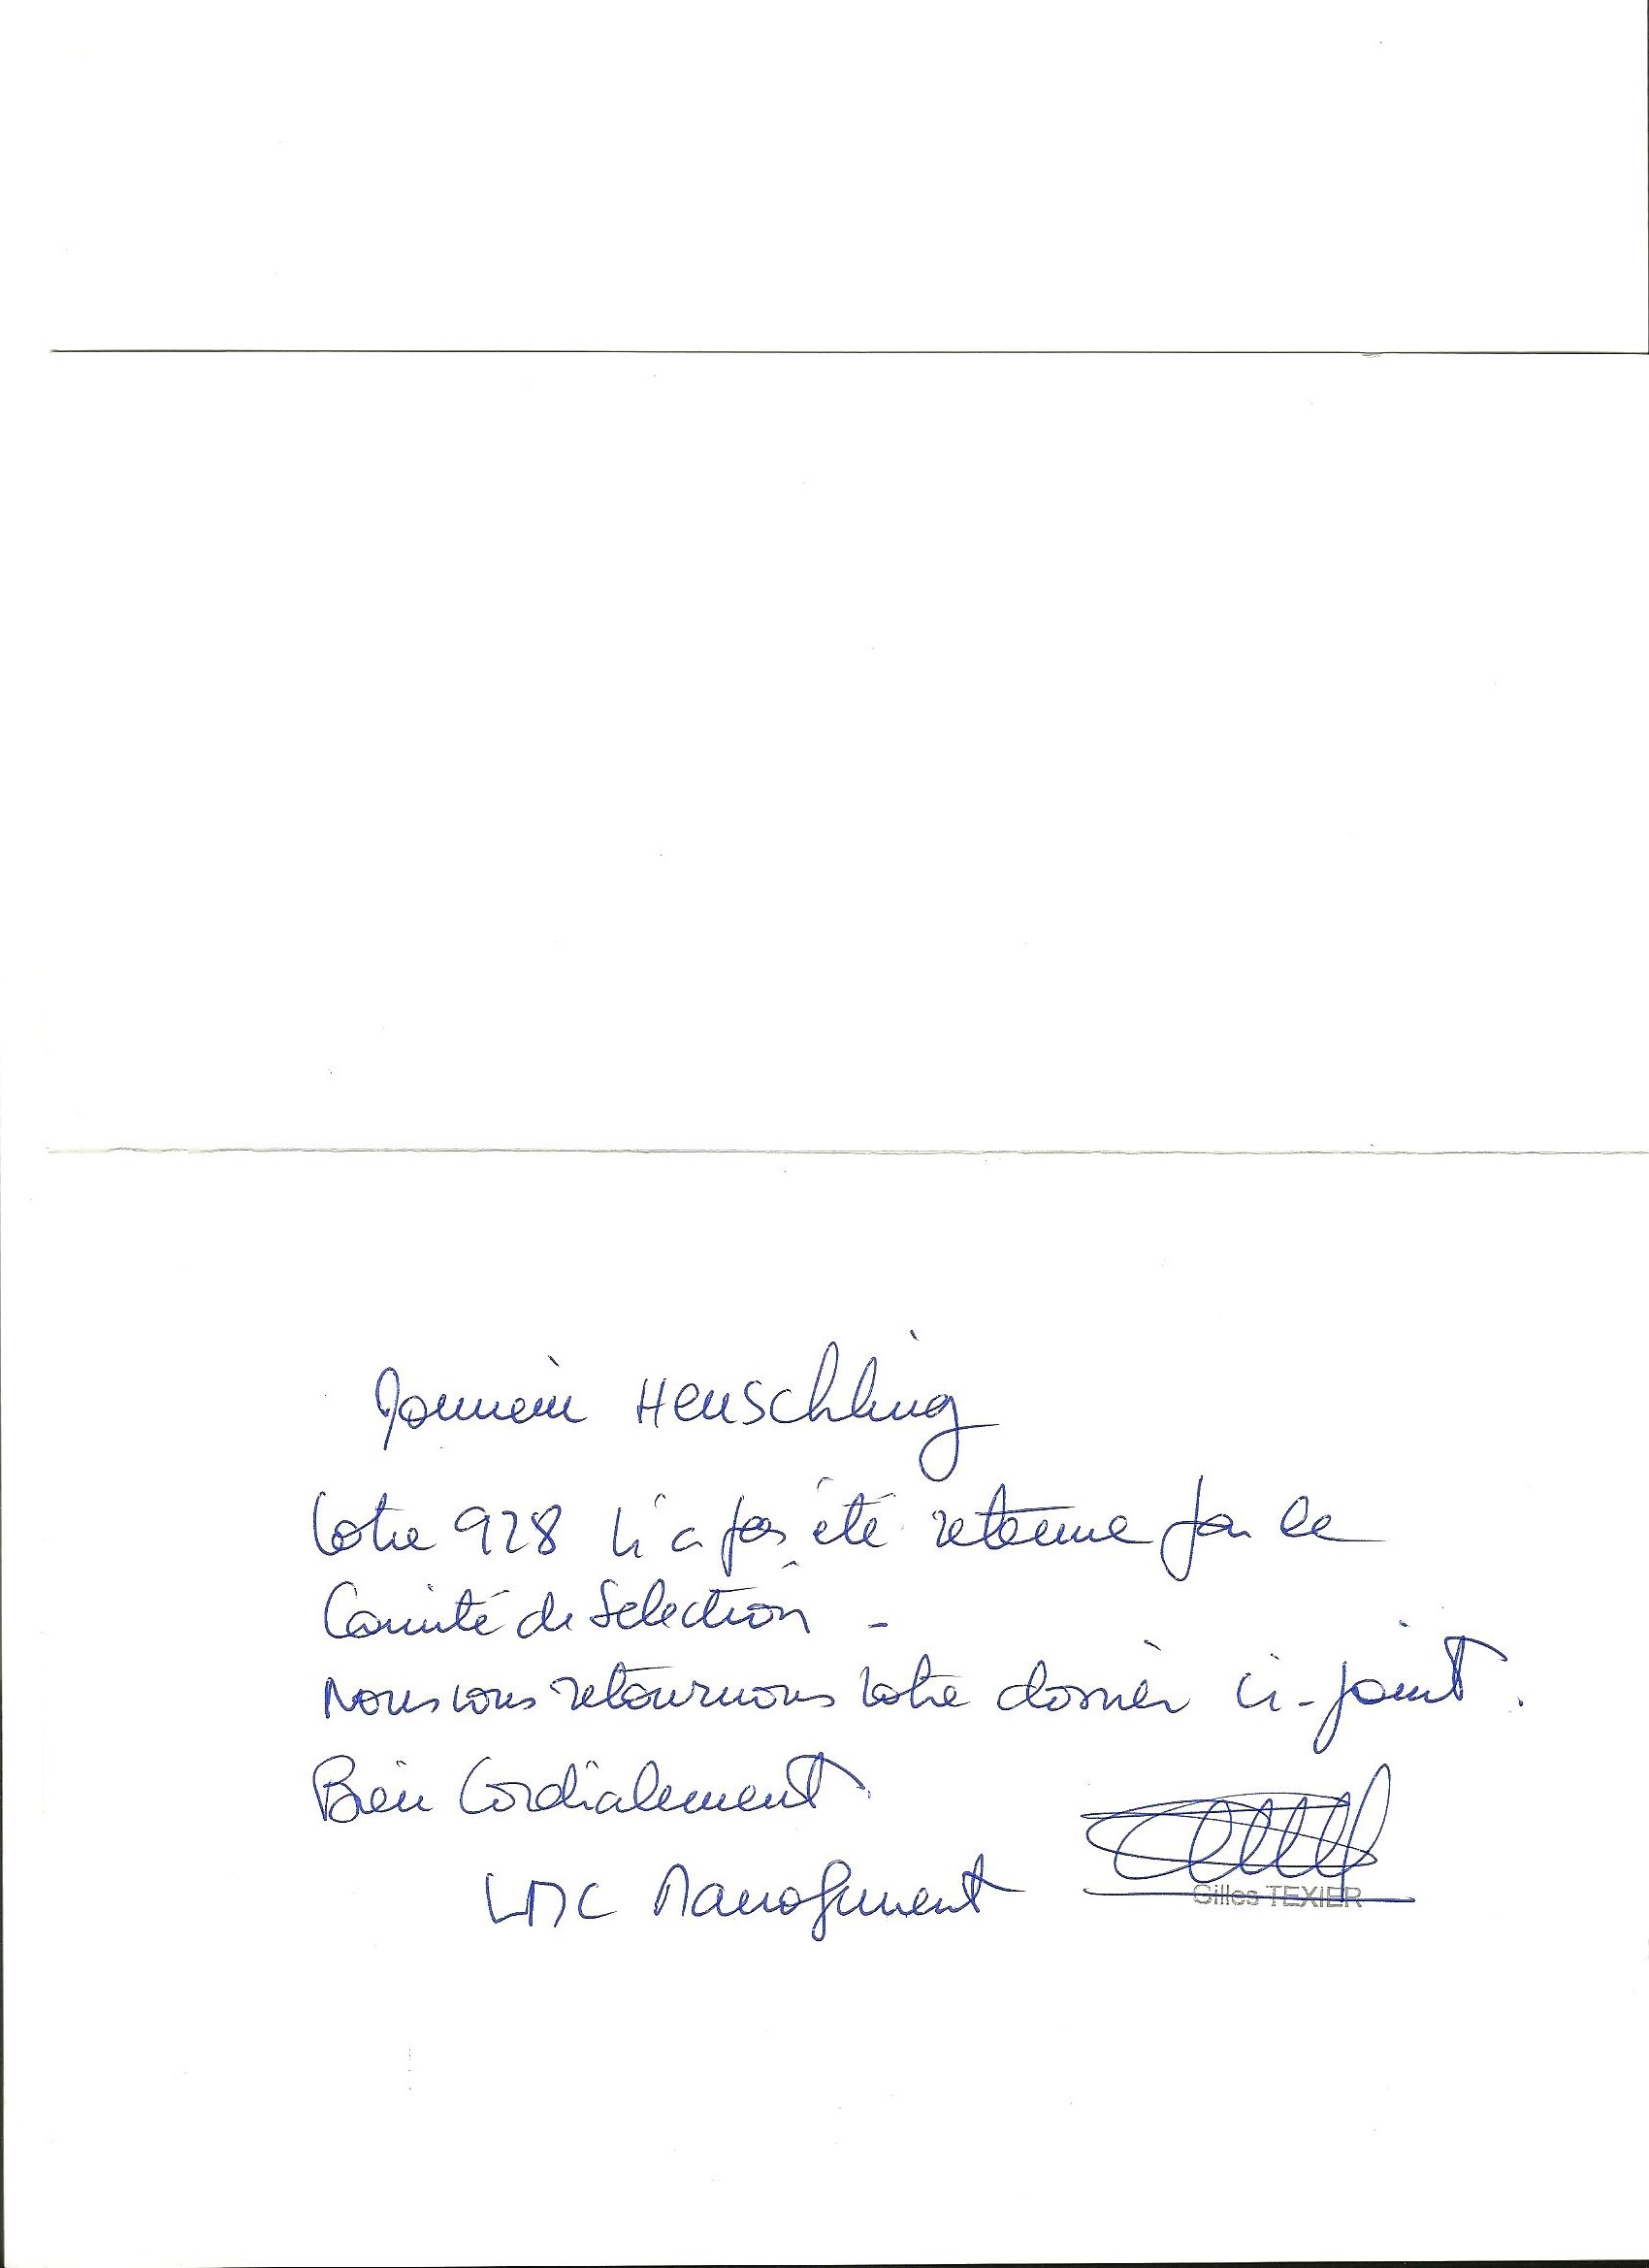 Monsieur Heuschling
Votre 928 n'a pas été retenue par le
Comité de Sélection -
Nous vous retournons votre dossier ci-joint.
Bien Cordialement
LMC Management
Gilles TEXIER